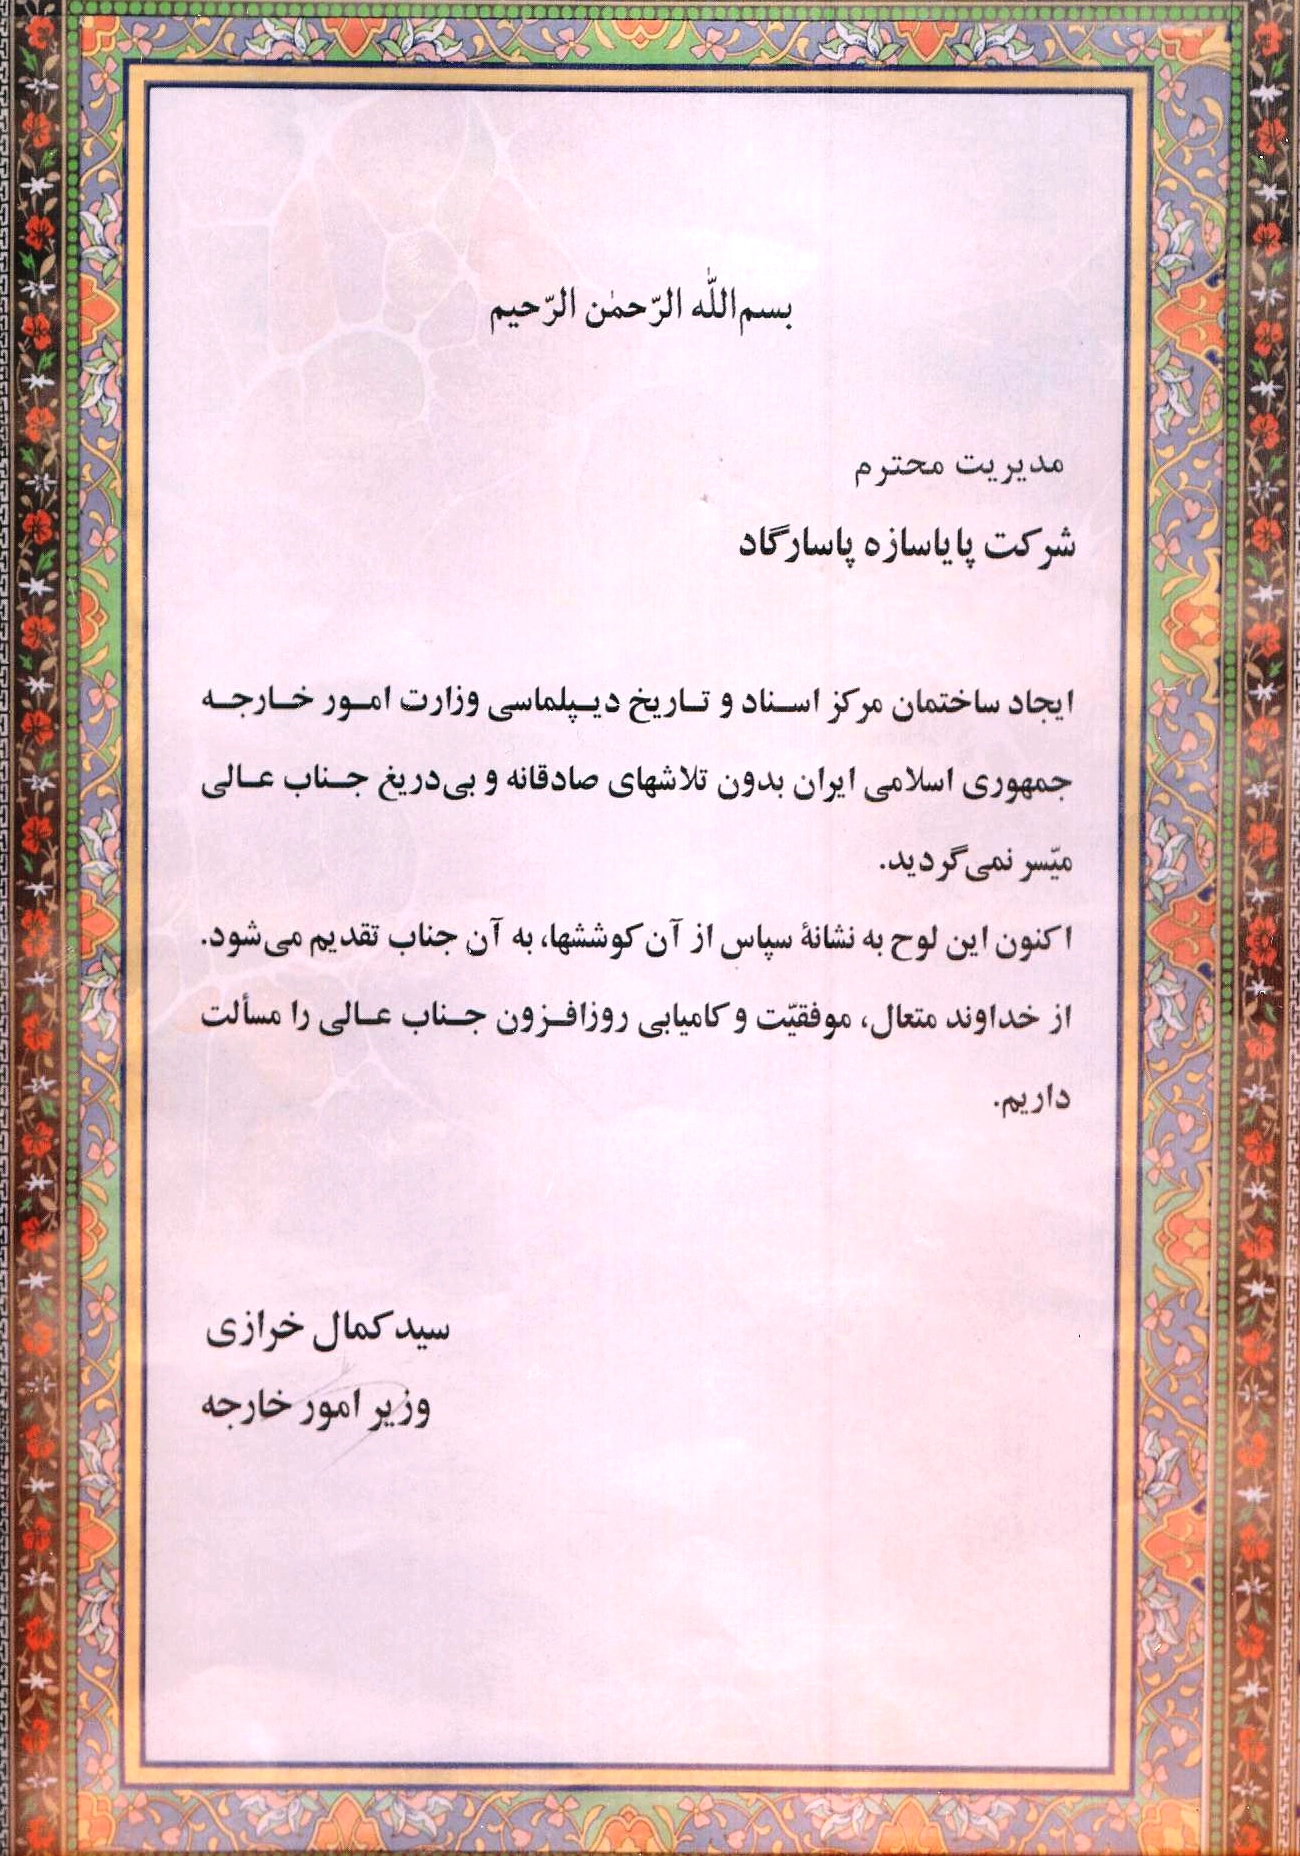 بسم‌الله الرّحمٰن الرّحیم
مدیریت محترم
شرکت پایاسازه پاسارگاد
ایجاد ساختمان مرکز اسناد و تاریخ دیپلماسی وزارت امور خارجه
جمهوری اسلامی ایران بدون تلاشهای صادقانه و بی‌دریغ جناب عالی
میّسر نمی‌گردید.
اکنون این لوح به نشانهٔ سپاس از آن کوششها، به آن جناب تقدیم می‌شود.
از خداوند متعال، موفقیّت و کامیابی روزافزون جناب عالی را مسألت
داریم.
سید کمال خرازی
وزیر امور خارجه